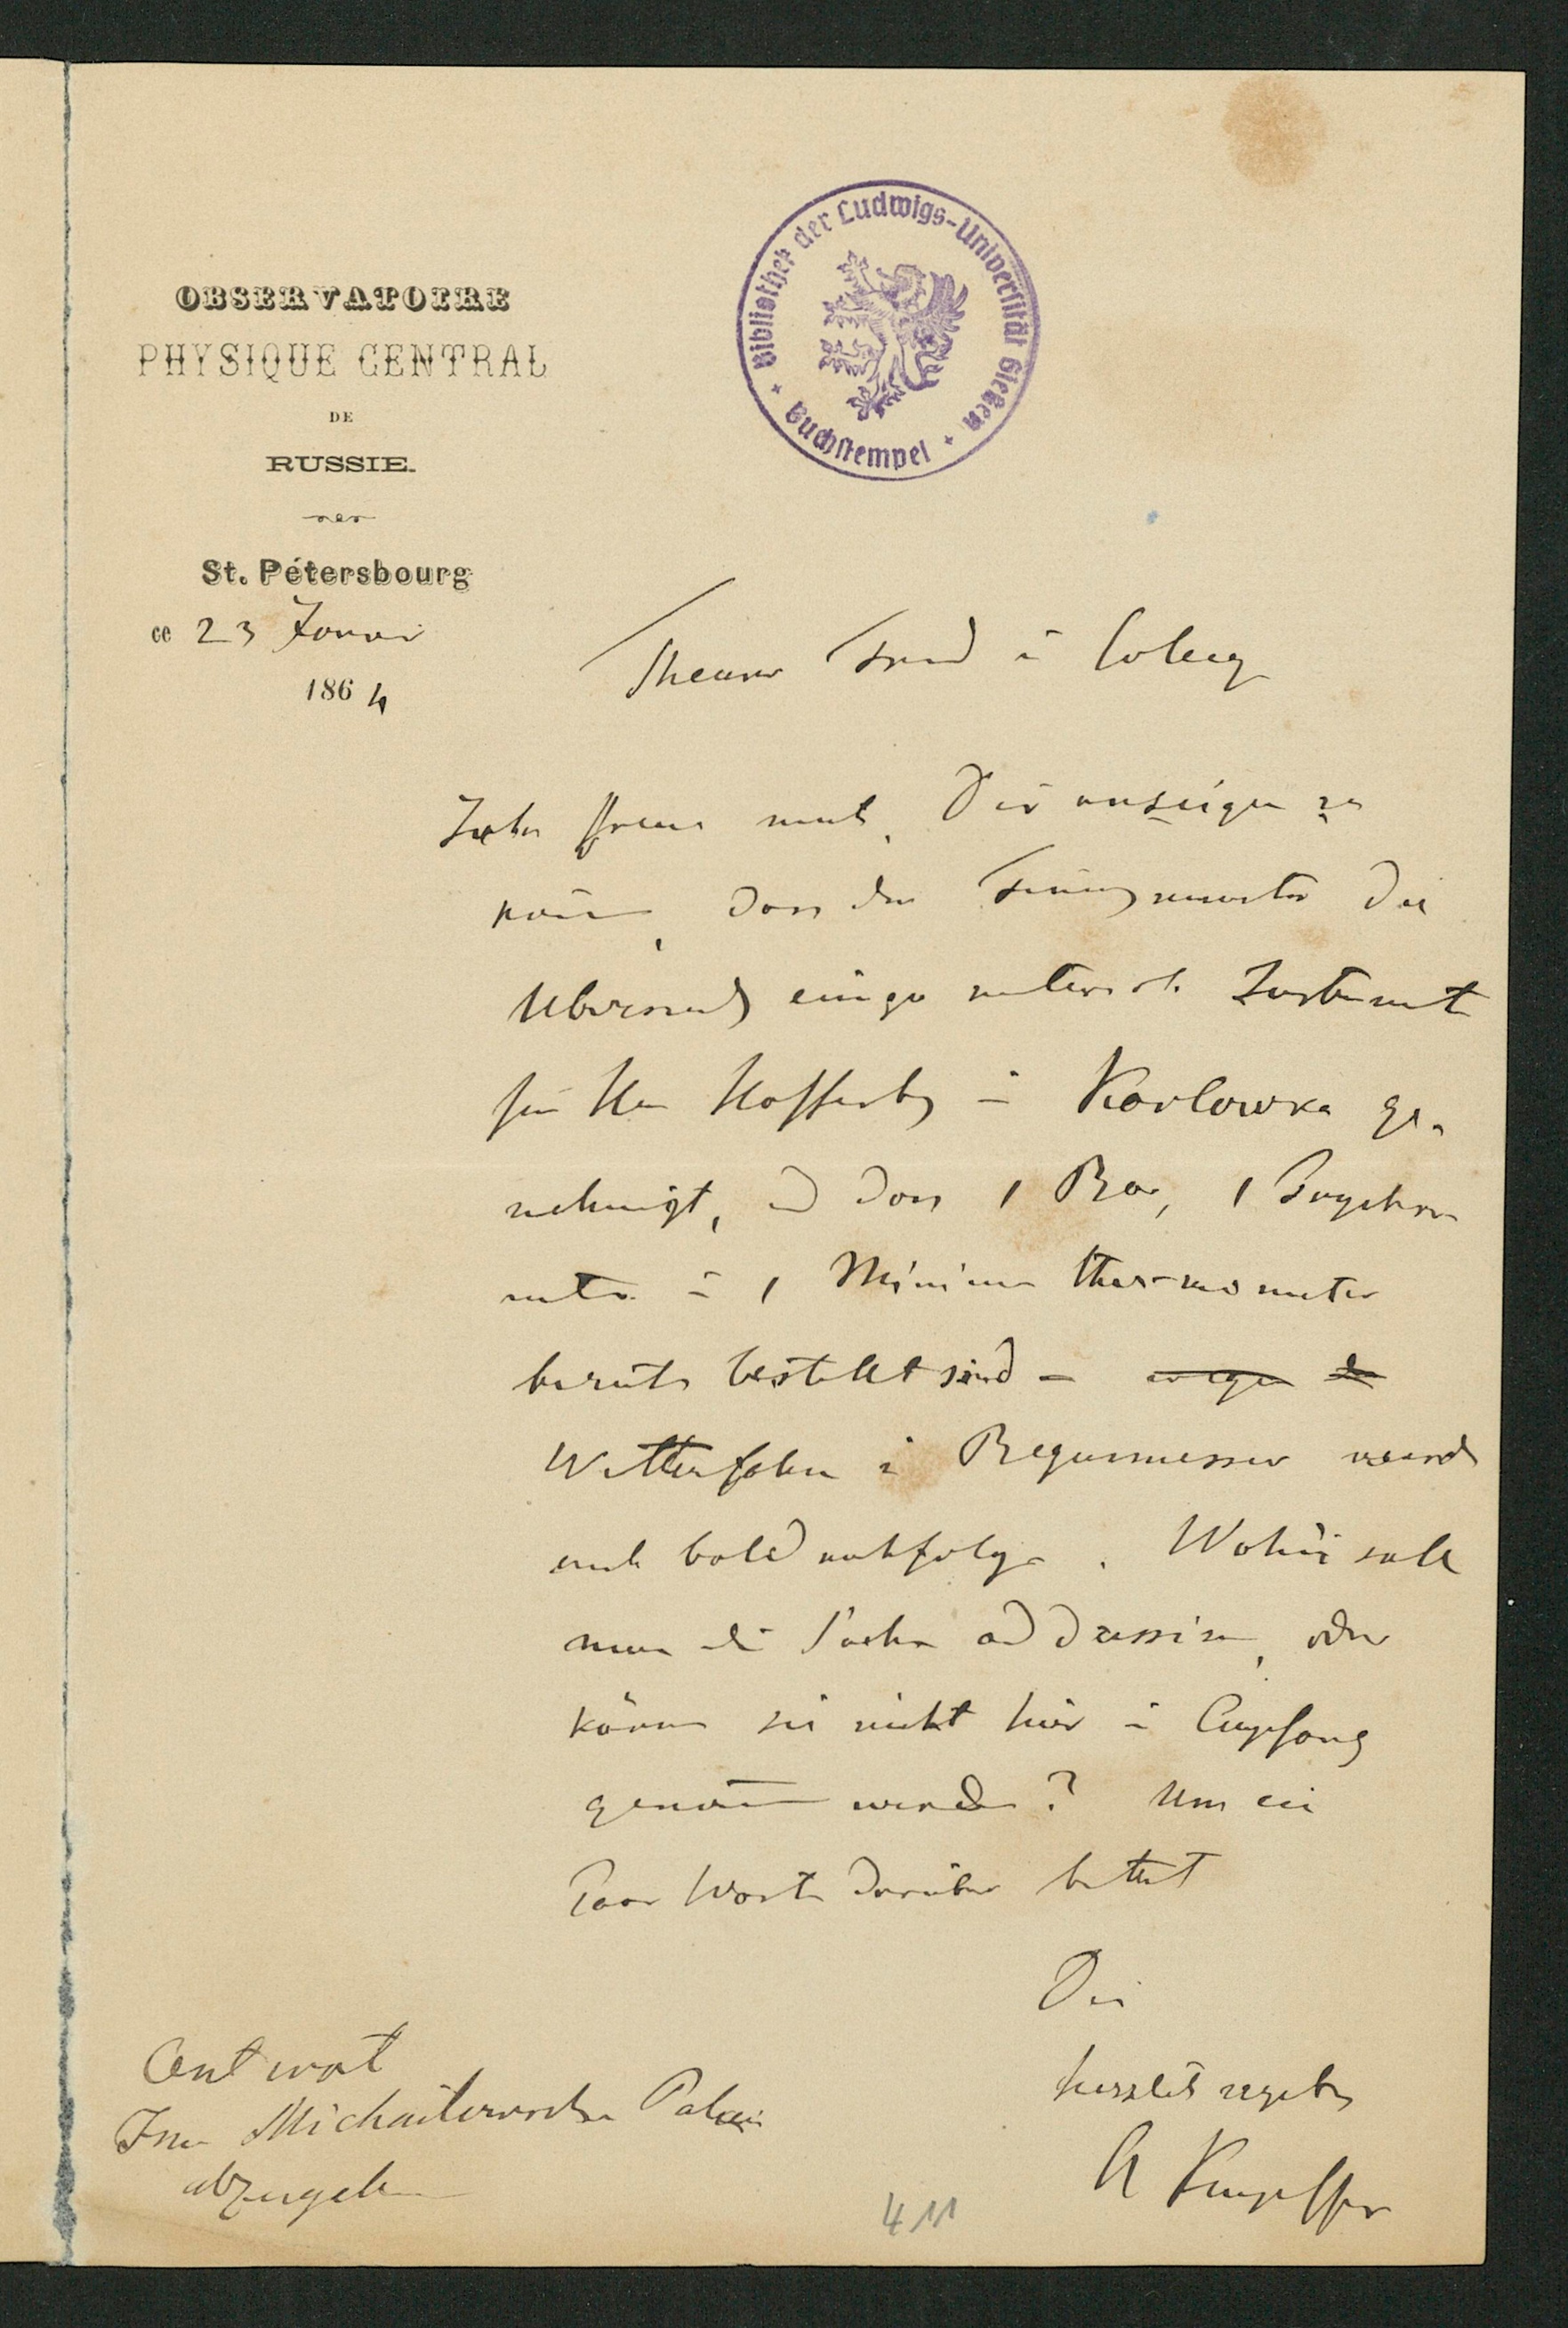 OBSERVATOIRE
PHYSIQUE CENTRAL
DE
RUSSIE.
St. Pétersbourg
ce 23 Januar
1864
Bibliothek der Ludwigs-Universität Gießen
Buchstempel
Theurer Freund u College
freue mich, Dir anzeigen zu
können, dass der Finanzminister die
Übersendung einiger meteorol. Instrumente
für Herrn in Karlowka ge-
nehmigt, und dass 1 Bar, 1 Psychro
meter u 1 Minimum thermometer
bereits bestellt sind –
Wetterfahne u Regenmesser werden
auch bald nachfolgen. Wohin soll
man die Sachen addressiren, oder
können sie nicht hier in Empfang
genommen werden? Um ein
Paar Worte darüber bittet
Dein
herzlich ergebener
A Kupffer
Antwort
Im Michailowschen Palais
abzugeben
411